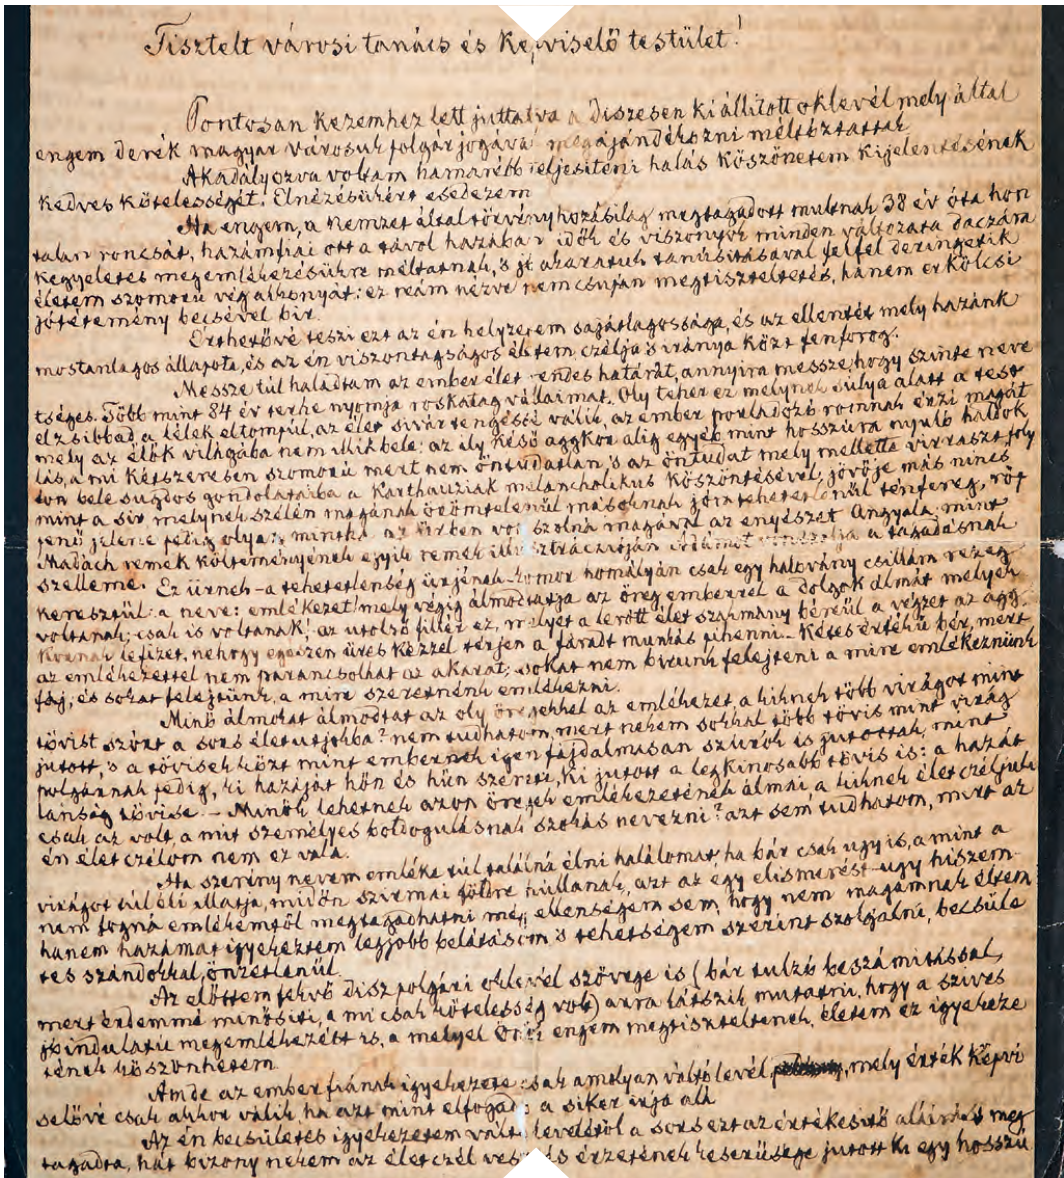 Tisztelt városi tanács és képviselő testület!
Pontosan kezemhez lett juttatva a díszesen kiállitott oklevél mely által
engem derék magyar városuk polgárjogával megajándékozni méltóztattak
Akadályozva voltam hamarább teljesiteni hálás köszönetem kijelentésének
kedves kötelességét. Elnézésükért esedezem
Ha engem, a nemzet által törvényhozásilag megtagadott multnak 38 év óta hon
talan roncsát, hazámfiai ott a távol hazában idők és viszonyok minden változata daczára
kegyeletes megemlékezésükre méltatnak, 's jó akaratuk tanúsitásával fel fel deringetik
életem szomorú végalkonyát: ez reám nézve nem csupán megtiszteltetés, hanem erkölcsi
jótétemény becsével bir.
Érthetővé teszi ezt az én helyzetem sajátlagossága, és az ellentét mely hazánk
mostanlagos állapota, és az én viszontagságos életem czélja 's iránya közt fenforog.
Messze túl haladtam az ember élet rendes határát, annyira messze, hogy szinte neve
tséges. Több mint 84 év terhe nyomja roskatag vállaimat. Oly teher ez melynek súlya alatt a test
elzsibbad, a lélek eltompúl, az élet sivár tengéssé válik, az ember porladozó romnak érzi magát
mely az élők világába nem illik bele: az ily késő aggkor alig egyéb mint hosszúra nyuló haldok
lás, a mi kétszeresen szomorú mert nem öntudatlan 's az öntudat mely mellette virraszt foly
ton bele sugdos gondolataiba a Karthauziak melancholikus köszöntésével; jövője más nincs
mint a sir melynek szélén magának örömtelenül másoknak jóra tehetetlenül ténfereg, röp
penő jelene pedig olyan mintha az ürben vonszolná magával az enyészet Angyala, mint
Madách remek költeményének egyik remek illusztráczióján Ádámot vonszolja a tagadásnak
szelleme. Ez ürnek – a tehetetlenség ürjének – komor homályán csak egy halovány csillám rezeg
keresztül: a neve: emlékezet! mely végig álmodtatja az öreg emberrel a dolgok álmát melyek
voltanak; csak is voltanak; az utolsó fillér ez, melyet a lerótt élet szakmány béréül a végzet az agg
kornak lefizet, nehogy egészen üres kézzel térjen a fáradt munkás pihenni. Kétes értékű bér, mert
az emlékezettel nem parancsolhat az akarat; sokat nem birunk felejteni a mire emlékeznünk
fáj, és sokat felejtünk, a mire szeretnénk emlékezni.
Minő álmokat álmodtat az oly öregekkel az emlékezet, a kiknek több virágot mint
tövist szórt a sors életutjokba? nem tudhatom, mert nekem sokkal több tövis mint virág
jutott, 's a tövisek közt mint embernek igen fájdalmasan szúrók is jutottak, mint
polgárnak pedig, ki hazáját hőn és hűn szerette, ki jutott a legkinosabb tövis is: a hazát
lanság tövise. – Minők lehetnek azon öregek emlékezetének álmai, a kiknek életczéljuk
csak az volt, a mit személyes boldogulásnak szokás nevezni? azt sem tudhatom, mert az
én életczélom nem ez vala.
Ha szerény nevem emléke túl találná élni halálomat, ha bár csak ugy is, a mint a
virágot túl éli illatja, midőn szirmai földre hullanak, azt az egy elismerést – ugy hiszem –
nem fogná emlékemtől megtagadhatni még ellenségem sem, hogy nem magamnak éltem
hanem hazámat igyekeztem legjobb belátásom 's tehetségem szerint szolgálni, becsüle
tes szándokkal, önzetlenül.
Az előttem fekvő disz polgári oklevél szövege is (bár tulzó beszámitással,
mert érdemmé minősiti, a mi csak kötelesség volt) arra látszik mutatni, hogy a szives
jóindulatú megemlékezést is, a melyel Önök engem megtiszteltenek, életem ez igyekeze
tének köszönhetem.
Ámde az ember fiának igyekezete csak amolyan váltó levél, mely érték képvi
selővé csak akkor válik ha azt mint elfogadó a siker irja alá
Az én becsületes igyekezetem váltó levelétől a sors ezt az értékesitő aláirást meg
tagadta, hát bizony nekem az életczél vesztés érzetének keserűsége jutott ki egy hosszú